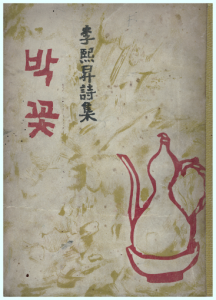 李熙昇詩集
박꽃